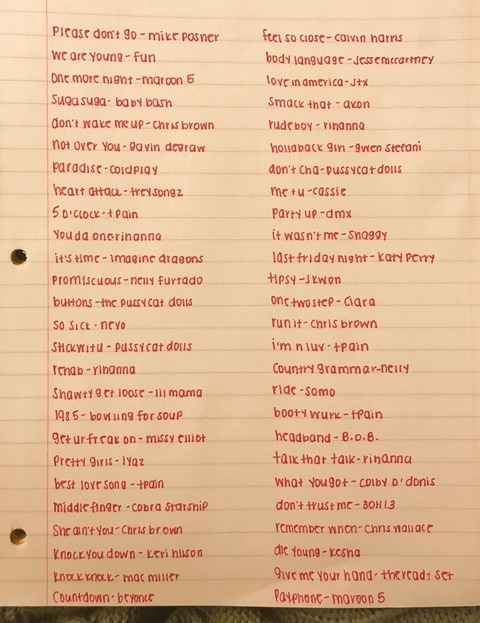 Please don't go - mike posner
we are young - fun
one more night - maroon 5
Suga suga - baby bash
don't wake me up - chris brown
not over you - gavin degraw
paradise - coldplay
heart attack - trey songz
5 o'clock - t pain
you da one - rihanna
it's time - imagine dragons
Promiscuous - nelly furtado
buttons - the pussycat dolls
so sick - neyo
Stickwitu - pussycat dolls
rehab - rihanna
Shawty get loose - lil mama
1985 - bowling for soup
get ur freak on - missy elliot
Pretty girls - iyaz
best love song - tpain
middle finger - cobra starship
She ain't you - chris brown
Knock you down - keri hilson
Knock knock - mac miller
Countdown - beyonce
feel so close - calvin harris
body language - jesse mccartney
love in america - jtx
Smack that - akon
rude boy - rihanna
hollaback girl - gwen stefani
don't cha - pussycat dolls
me + u - cassie
Party up - dmx
it wasn't me - Shaggy
last friday night - Katy Perry
tipsy - Jkwon
one two step - Ciara
run it - chris brown
i'm n luv - tpain
Country grammar - nelly
ride - somo
booty wurk - tpain
headband - B.O.B.
talk that talk - rihanna
what you got - colby o'donis
don't trust me - 3OH!3
remember when - chris wallace
die young - kesha
give me your hand - the ready set
Payphone - maroon 5